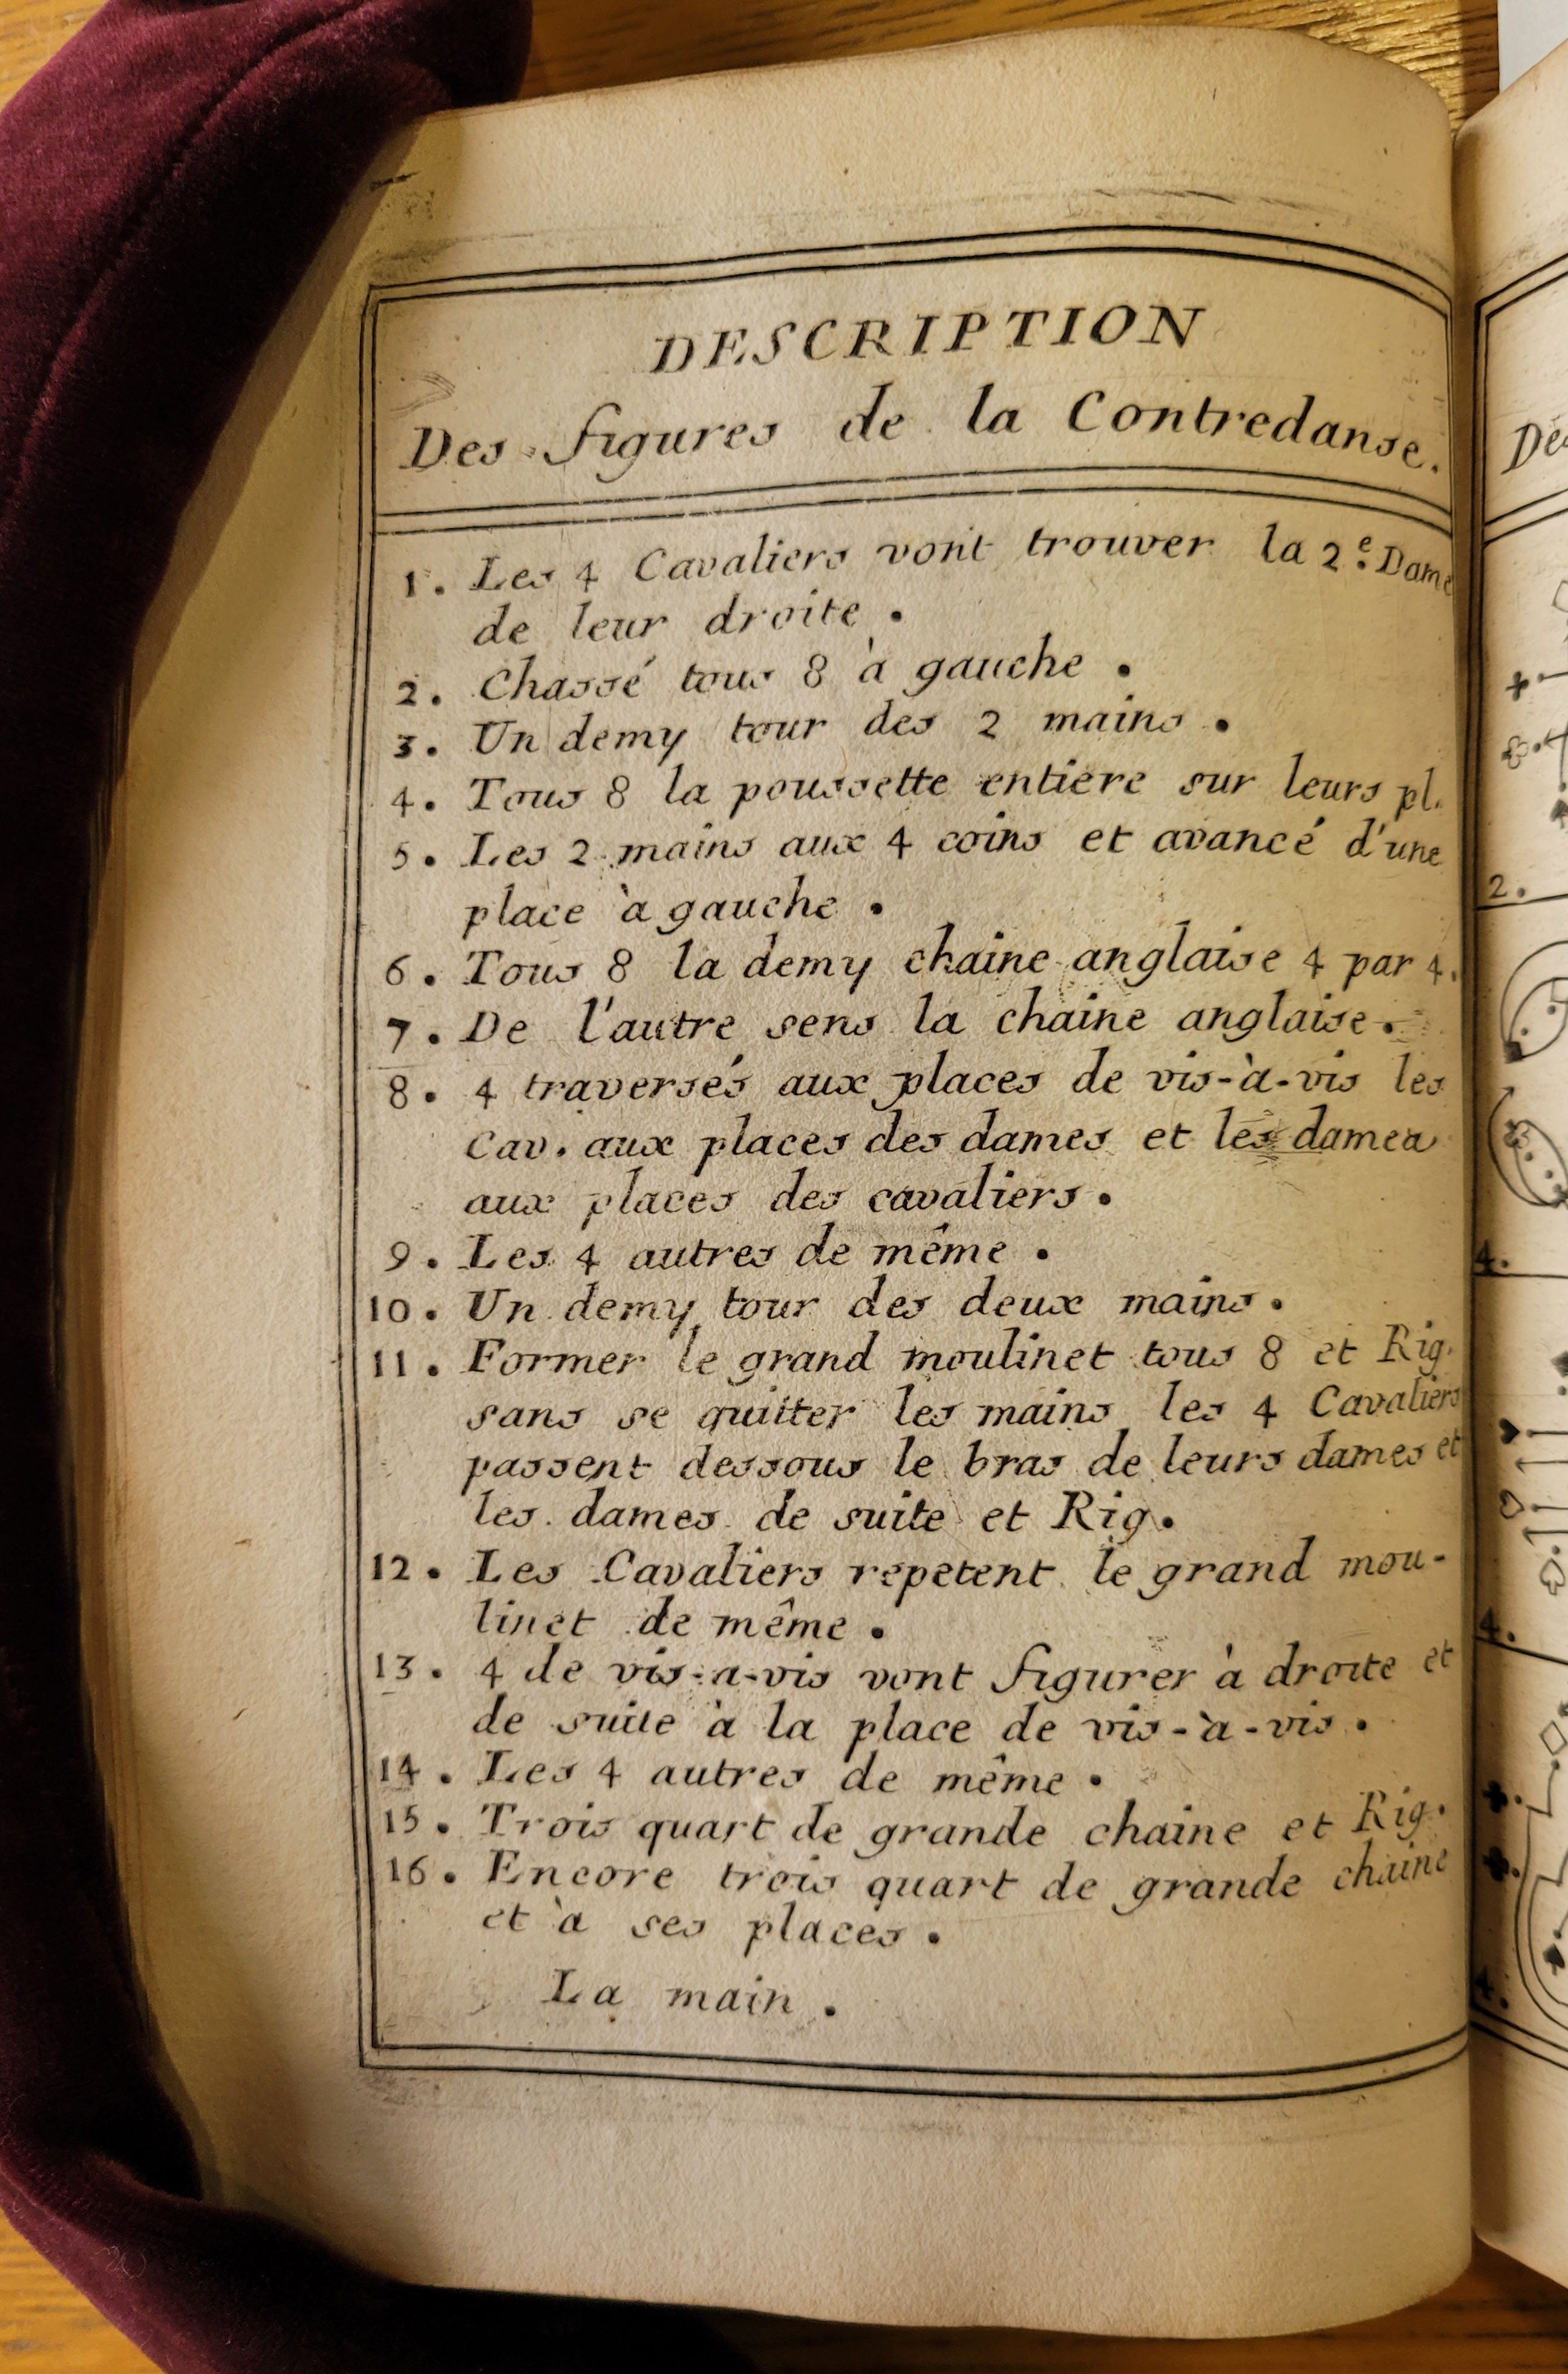 DESCRIPTION
Des figures de la Contredanse.
1. Les 4 Cavaliers vont trouver la 2e. Dame
de leur droite.
2. Chassé tous 8 à gauche.
3. Un demy tour des 2 mains.
4. Tous 8 la poussette entiere sur leurs pl.
5. Les 2 mains aux 4 coins et avancé d'une
place à gauche.
6. Tous 8 la demy chaine anglaise 4 par 4.
7. De l'autre sens la chaine anglaise.
8. 4 traversés aux places de vis-à-vis les
Cav. aux places des dames et les damea
aux places des cavaliers.
9. Les 4 autres de même.
10. Un demy tour des deux mains.
11. Former le grand moulinet tous 8 et Rig.
sans se quitter les mains les 4 Cavaliers
passent dessous le bras de leurs dames et
les dames de suite et Rig.
12. Les Cavaliers repetent le grand mou-
linet de même.
13. 4 de vis-a-vis vont figurer à droite et
de suite à la place de vis-à-vis.
14. Les 4 autres de même.
15. Trois quart de grande chaine et Rig.
16. Encore trois quart de grande chaine
et à ses places.
La main.
2.
4.
4.
4.